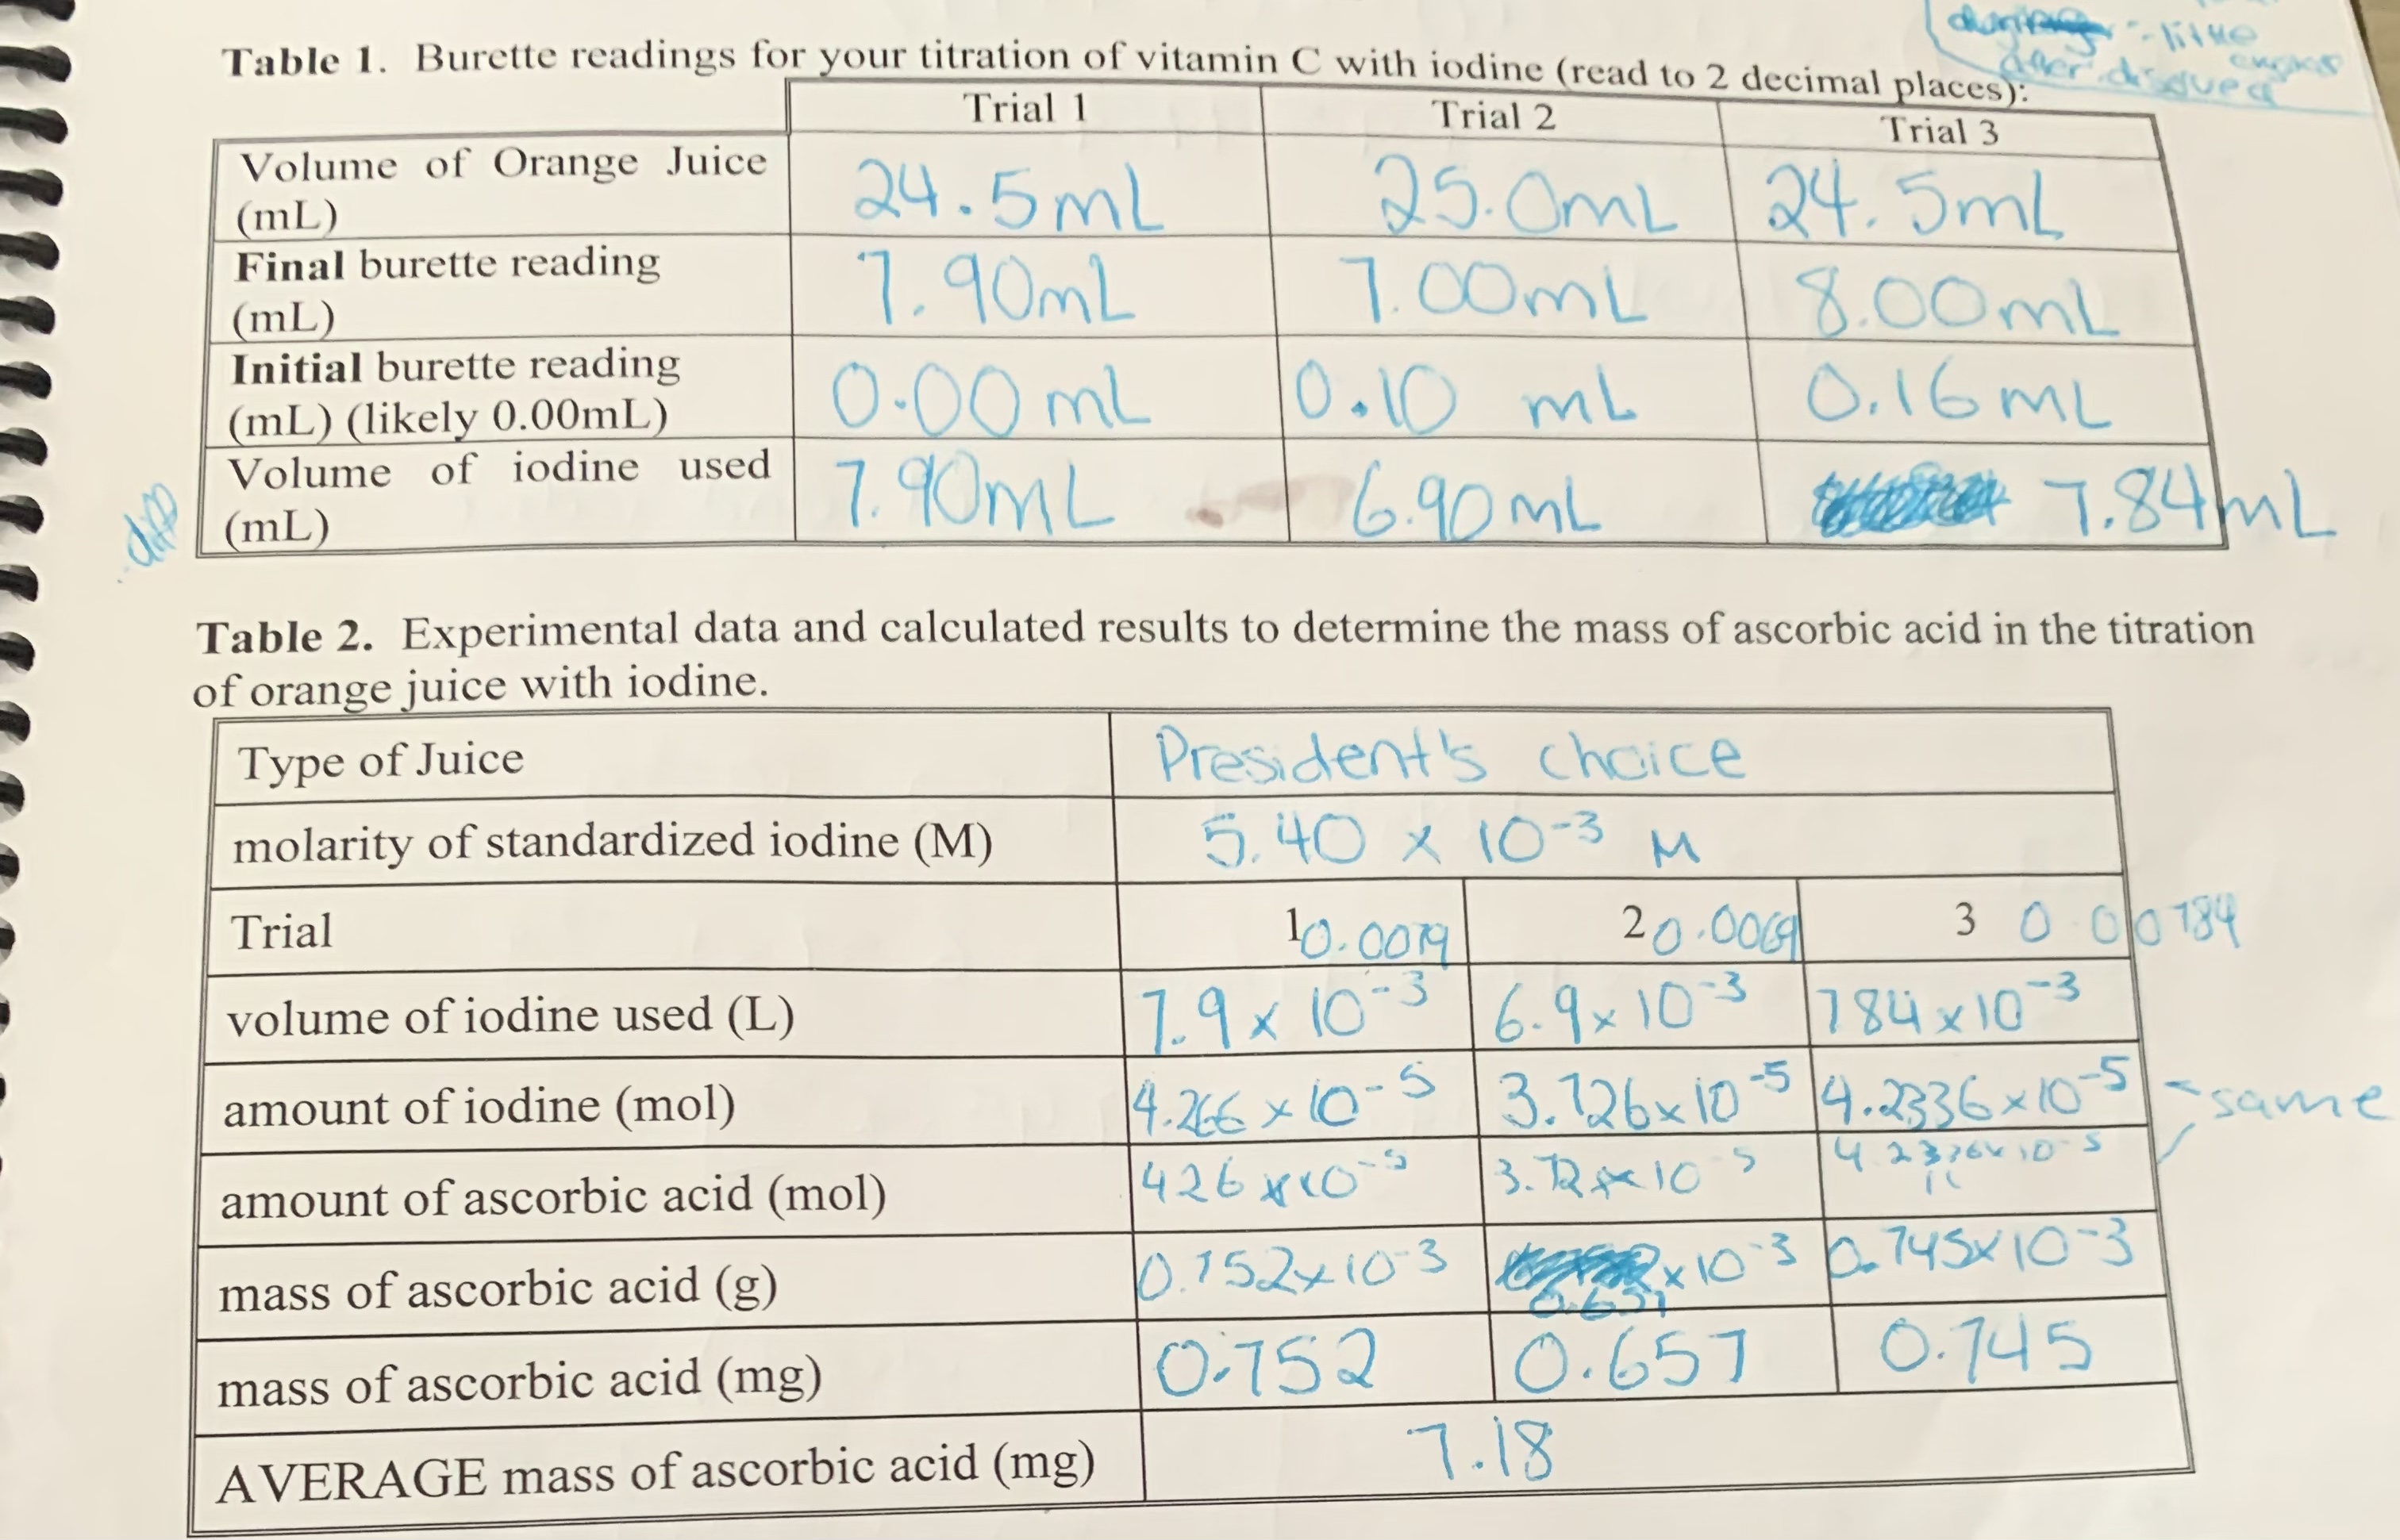 during - litke
after disolved engnos
Table 1. Burette readings for your titration of vitamin C with iodine (read to 2 decimal places):
Trial 1 Trial 2 Trial 3
Volume of Orange Juice (mL) 24.5mL 25.0mL 24.5mL
Final burette reading (mL) 7.90mL 7.00mL 8.00mL
Initial burette reading (mL) (likely 0.00mL) 0.00mL 0.10 mL 0.16mL
diff Volume of iodine used (mL) 7.90mL 6.90mL 7.84mL
Table 2. Experimental data and calculated results to determine the mass of ascorbic acid in the titration
of orange juice with iodine.
Type of Juice President's choice
molarity of standardized iodine (M) 5.40 × 10⁻³ M
Trial 1 0.0079 2 0.0069 3 0.00784
volume of iodine used (L) 7.9 × 10⁻³ 6.9 × 10⁻³ 784 × 10⁻³
amount of iodine (mol) 4.266 × 10⁻⁵ 3.726 × 10⁻⁵ 4.2336 × 10⁻⁵ same
amount of ascorbic acid (mol) 426 × 10⁻⁵ 3.72 × 10⁻⁵ 4.2336 × 10⁻⁵
mass of ascorbic acid (g) 0.752 × 10⁻³ 0.657 × 10⁻³ 0.745 × 10⁻³
mass of ascorbic acid (mg) 0.752 0.657 0.745
AVERAGE mass of ascorbic acid (mg) 7.18